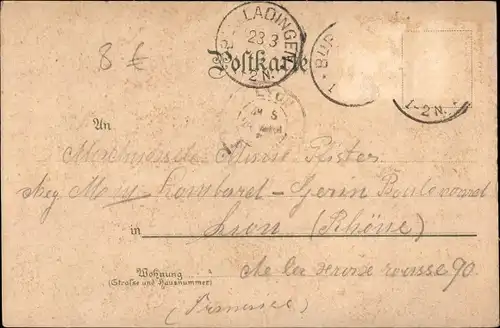 8 €
LADINGEN
23 3
2 N.
Postkarte
BUR
1-2 N.
LYON
An
Mademoiselle Marie Pfister
Lombard-Gerin Boulevard
in Lion (Rhône)
Wohnung
(Straße und Hausnummer)
de la croix rousse 90